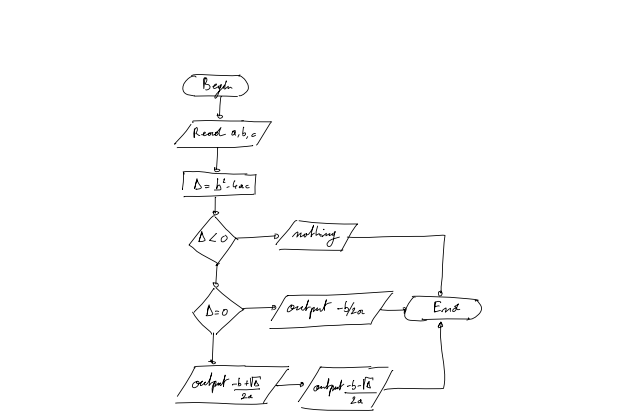 Begin
Read a,b,c
Δ = b² - 4ac
Δ < 0
nothing
Δ = 0
output -b/2a
End
output -b+√Δ
2a
output -b-√Δ
2a